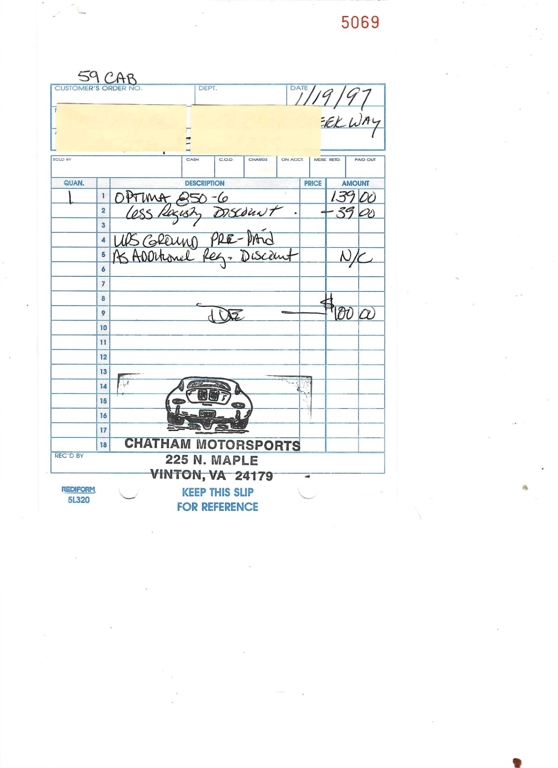 5069
59 CAB
CUSTOMER'S ORDER NO. DEPT. DATE 1/19/97
EEK WAY
SOLD BY CASH C.O.D. CHARGE ON ACCT. MDSE. RETD. PAID OUT
QUAN. DESCRIPTION PRICE AMOUNT
1 1 OPTIMA 850-6 139 00
2 Less Registry DISCOUNT - 39 00
3
4 UPS GROUND PRE-PAID
5 AS ADDITIONAL Reg. Discount N/C
6
7
8
9 DUE $100 00
10
11
12
13
14
15
16
17
18
CHATHAM MOTORSPORTS
REC'D BY
225 N. MAPLE
VINTON, VA 24179
REDIFORM
5L320
KEEP THIS SLIP
FOR REFERENCE